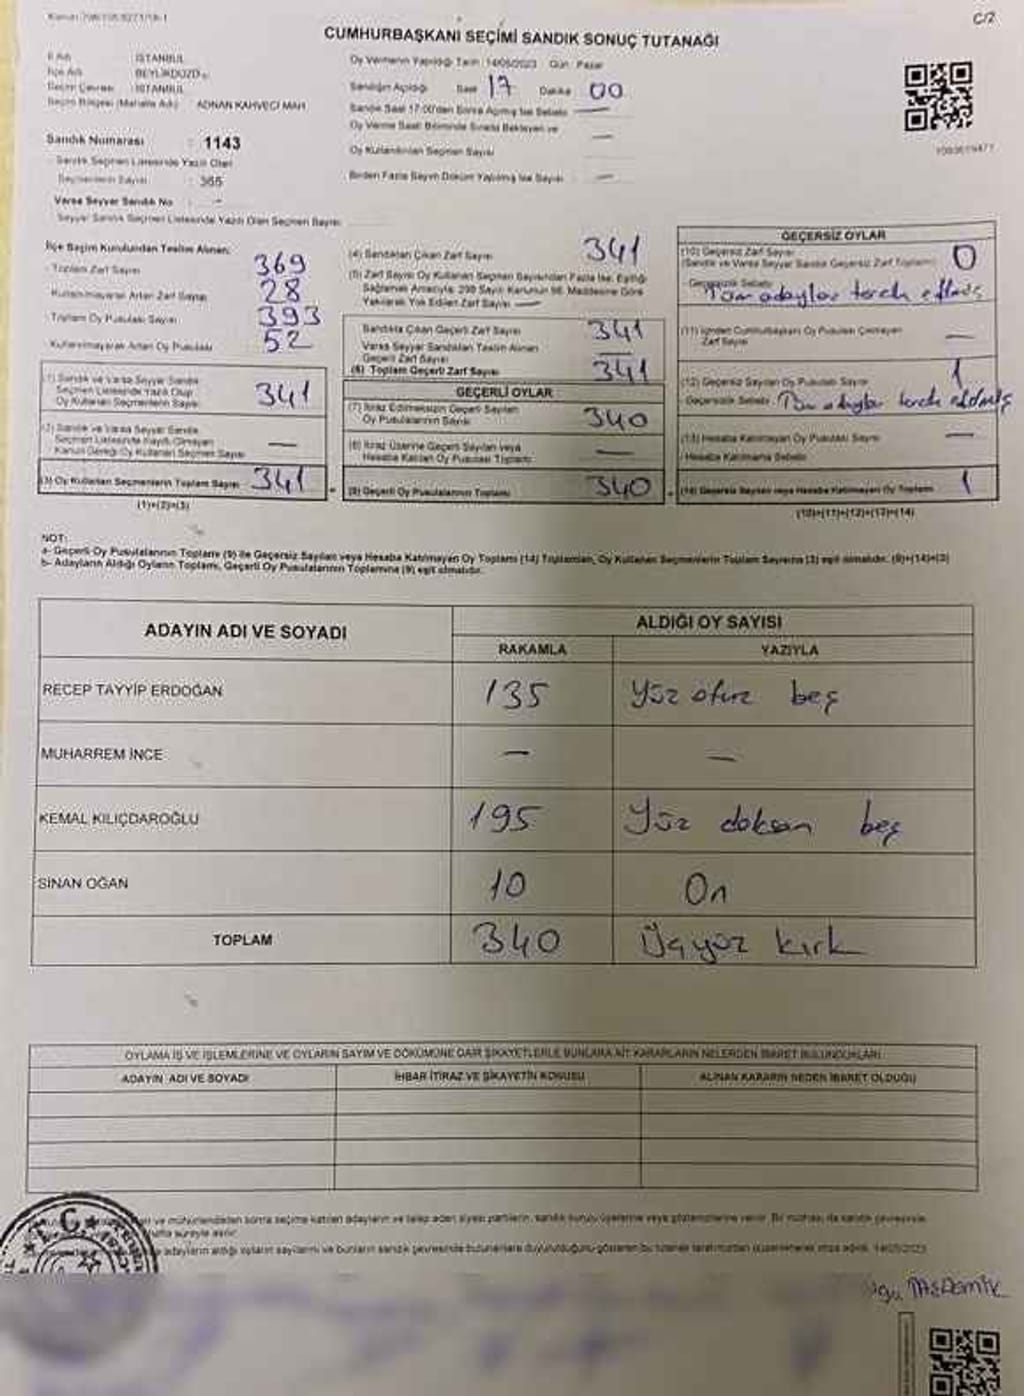 C/2
CUMHURBAŞKANI SEÇİMİ SANDIK SONUÇ TUTANAĞI
İl Adı : İSTANBUL
İlçe Adı : BEYLİKDÜZÜ
Seçim Çevresi : İSTANBUL
Seçim Bölgesi (Mahalle Adı) : ADNAN KAHVECİ MAH.
Oy Vermenin Yapıldığı Tarih : 14/05/2023 Gün : Pazar
Sandığın Açıldığı Saat 17 Dakika 00
Sandık Saat 17:00'den Sonra Açılmış İse Sebebi —
Oy Verme Saati Bitiminde Sırada Bekleyen ve
Oy Kullandırılan Seçmen Sayısı —
Birden Fazla Sayım Döküm Yapılmış İse Sayısı —
Sandık Numarası : 1143
Sandık Seçmen Listesinde Yazılı Olan
Seçmenlerin Sayısı : 365
Varsa Seyyar Sandık No : -
Seyyar Sandık Seçmen Listesinde Yazılı Olan Seçmen Sayısı
İlçe Seçim Kurulundan Teslim Alınan:
Toplam Zarf Sayısı 369
Kullanılmayarak Artan Zarf Sayısı 28
Toplam Oy Pusulası Sayısı 393
Kullanılmayarak Artan Oy Pusulası 52
(1) Sandık ve Varsa Seyyar Sandık
Seçmen Listesinde Yazılı Olup
Oy Kullanan Seçmenlerin Sayısı 341
(2) Sandık ve Varsa Seyyar Sandık
Seçmen Listesinde Kayıtlı Olmayan
Kanun Gereği Oy Kullanan Seçmen Sayısı —
(3) Oy Kullanan Seçmenlerin Toplam Sayısı 341
(1)+(2)=(3)
(4) Sandıktan Çıkan Zarf Sayısı 341
(5) Zarf Sayısı Oy Kullanan Seçmen Sayısından Fazla İse, Eşitliği
Sağlamak Amacıyla, 298 Sayılı Kanunun 98. Maddesine Göre
Yakılarak Yok Edilen Zarf Sayısı —
Sandıkta Çıkan Geçerli Zarf Sayısı 341
Varsa Seyyar Sandıktan Teslim Alınan
Geçerli Zarf Sayısı —
(6) Toplam Geçerli Zarf Sayısı 341
GEÇERLİ OYLAR
(7) İtiraz Edilmeksizin Geçerli Sayılan
Oy Pusulalarının Sayısı 340
(8) İtiraz Üzerine Geçerli Sayılan veya
Hesaba Katılan Oy Pusulası Toplamı —
(9) Geçerli Oy Pusulalarının Toplamı 340
GEÇERSİZ OYLAR
(10) Geçersiz Zarf Sayısı 0
(Sandık ve Varsa Seyyar Sandık Geçersiz Zarf Toplamı)
Geçersizlik Sebebi: Tüm adaylar
(11) İçinden Cumhurbaşkanı Oy Pusulası Çıkmayan
Zarf Sayısı —
(12) Geçersiz Sayılan Oy Pusulası Sayısı 1
Geçersizlik Sebebi:
(13) Hesaba Katılmayan Oy Pusulası Sayısı —
Hesaba Katılmama Sebebi:
(14) Geçersiz Sayılan veya Hesaba Katılmayan Oy Toplamı 1
(10)+(11)+(12)+(13)=(14)
NOT:
a- Geçerli Oy Pusulalarının Toplamı (9) ile Geçersiz Sayılan veya Hesaba Katılmayan Oy Toplamı (14) Toplamları, Oy Kullanan Seçmenlerin Toplam Sayısına (3) eşit olmalıdır. (9)+(14)=(3)
b- Adayların Aldığı Oyların Toplamı, Geçerli Oy Pusulalarının Toplamına (9) eşit olmalıdır.
ADAYIN ADI VE SOYADI
ALDIĞI OY SAYISI
RAKAMLA YAZIYLA
RECEP TAYYİP ERDOĞAN 135 Yüz otuz beş
MUHARREM İNCE — —
KEMAL KILIÇDAROĞLU 195 Yüz doksan beş
SİNAN OĞAN 10 On
TOPLAM 340 Üçyüz kırk
OYLAMA İŞ VE İŞLEMLERİNE VE OYLARIN SAYIM VE DÖKÜMÜNE DAİR ŞİKAYETLERLE BUNLARA AİT KARARLARIN NELERDEN İBARET BULUNDUKLARI
ADAYIN ADI VE SOYADI İHBAR İTİRAZ VE ŞİKAYETİN KONUSU ALINAN KARARIN NEDEN İBARET OLDUĞU
ve mühürlendikten sonra seçime katılan adayların ve talep eden siyasi partilerin, sandık kurulu üyelerine veya gözlemcilerine verilir. Bir nüshası da sandık çevresinde
adayların aldığı oyların sayılarını ve bunların sandık çevresinde bulunanlara duyurulduğunu gösteren bu tutanak tarafımızdan düzenlenerek imza edildi. 14/05/2023
T.C.